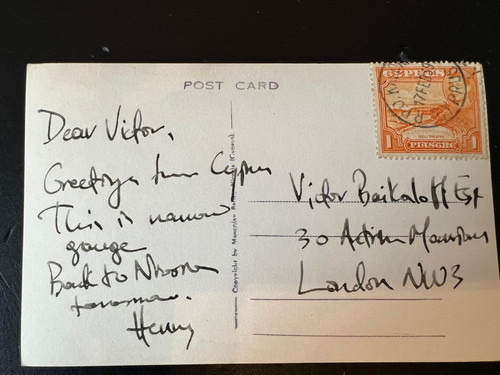 POST CARD
Dear Victor,
Greetings from Cyprus
This is narrow
gauge
Back to
tomorrow.
Henry
Copyright by Mangoian
Victor Baikaloff Esq
30 Mansions
London NW3
CYPRUS
1 PIASTRE 1
17 FE